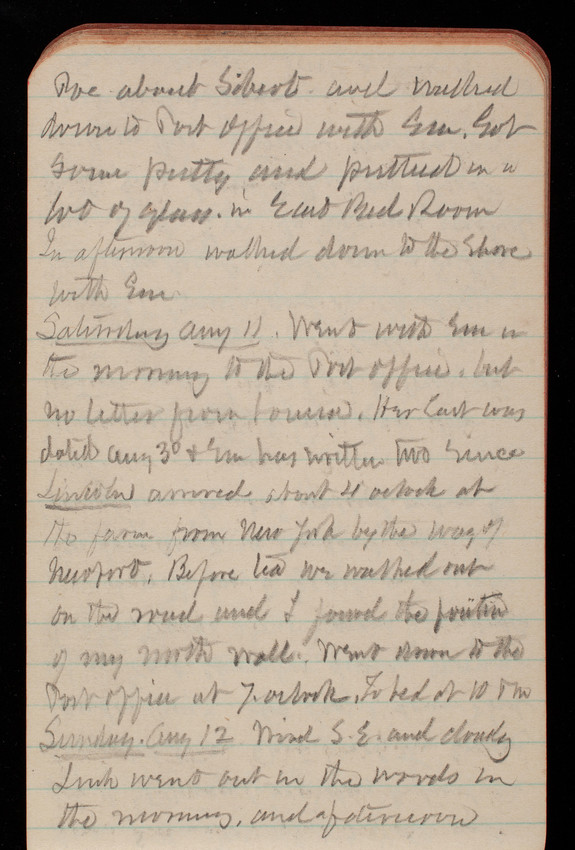 Poe about Sibert. and walked
down to Post Office with Em. Got
some putty and puttied in a
lot of glass. in East Bed Room
In afternoon walked down to the Shore
with Em
Saturday Aug 11. Went with Em in
the morning to the Post Office, but
no letter from Louisa. Her last was
dated Aug 3d & Em has written two since
Lincoln arrived about 4 oclock at
the farm from New York by the way of
Newport. Before tea we walked out
on the road and I found the
of my north wall. Went down to the
Post Office at 7 oclock. To bed at 10 P m
Sunday Aug 12 Wind S.E. and cloudy
Link went out in the woods in
the morning, and afternoon